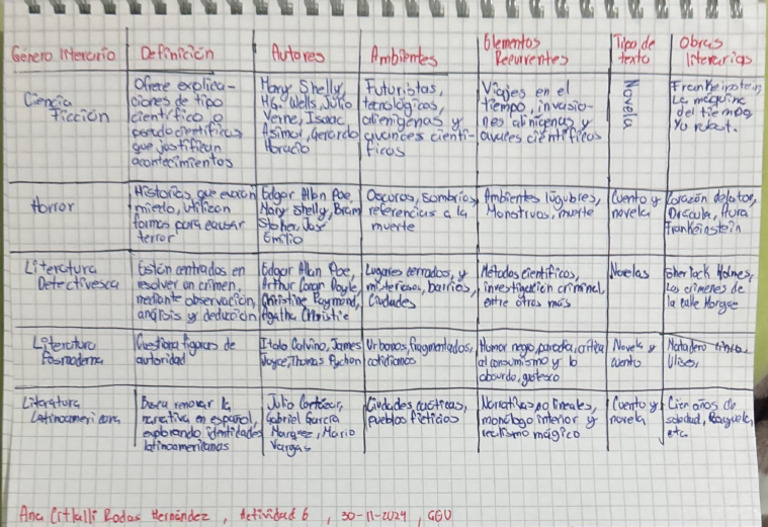 Género literario Definición Autores Ambientes Elementos Recurrentes Tipo de texto Obras literarias
Ciencia Ficción
Ofrece explica-
ciones de tipo
científico o
pseudocientíficas
que justifican
acontecimientos
Mary Shelly,
H.G. Wells, Julio
Verne, Isaac
Asimov, Gerardo
Horacio
Futuristas,
tecnológicos,
alienígenas y
avances cientí-
ficos
Viajes en el
tiempo, invasio-
nes alinígenas y
avales científicos
Novela
Frankeinstein,
La máquina
del tiempo,
Yo robot.
Horror
Historias, que
miedo, utilizan
formas para causar
terror
Edgar Allan Poe,
Mary Shelly, Bram
Stoker, José
Emilio
Oscuros, sombrios,
referencias a la
muerte
Ambientes lúgubres,
Monstruos, muerte
Cuento y
novela
Corazón delator,
Drácula, Aura
Frankeinstein
Literatura
Detectivesca
Están centrados en
resolver un crimen,
mediante observación,
análisis y deducción
Edgar Alan Poe,
Arthur Conan Doyle,
Christine Raymond,
Agatha Christie
Lugares cerrados, y
misteriosos, barrios,
Ciudades
Métodos científicos,
investigación criminal,
entre otros más
Novelas
Sherlock Holmes,
Los crímenes de
la calle Morgue
Literatura
Posmoderna
Cuestiona figuras de
autoridad
Italo Calvino, James
Joyce, Thomas Pychon
Urbanos, fragmentados,
cotidianos
Humor negro, parodia, crítica
al consumismo y lo
absurdo, grotesco
Novela y
cuento
Matadero
Ulises,
Literatura
Latinoamericana
Busca renovar la
narrativa en español,
explorando identidades
latinoamericanas
Julio Cortázar,
Gabriel García
Marquez, Mario
Vargas
Ciudades caóticas,
pueblos ficticios
Narrativas no lineales,
monólogo interior y
realismo mágico
Cuento y
novela
Cien años de
soledad, Rayuela,
etc.
Ana Citlalli Rodas Hernández, Actividad 6, 30-11-2024, GGU